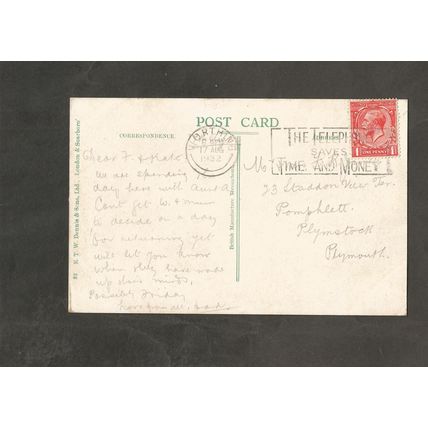 POST CARD
CORRESPONDENCE.
WORTHING
17 AUG
1922
THE TELEPH
SAVES
TIME AND MONEY
1 ONE PENNY 1
Dear F &
We are spending
day here with
Cant get W. & mum
to decide on a day
for returning yet
will let you know
when they have made
up their minds.
Possibly Friday
love from all,
23 Staddon View Ter.
Pomphlett.
Plymstock
Plymouth.
E. T. W. Dennis & Sons, Ltd., London & Scarboro'
British Manufacture Throughout